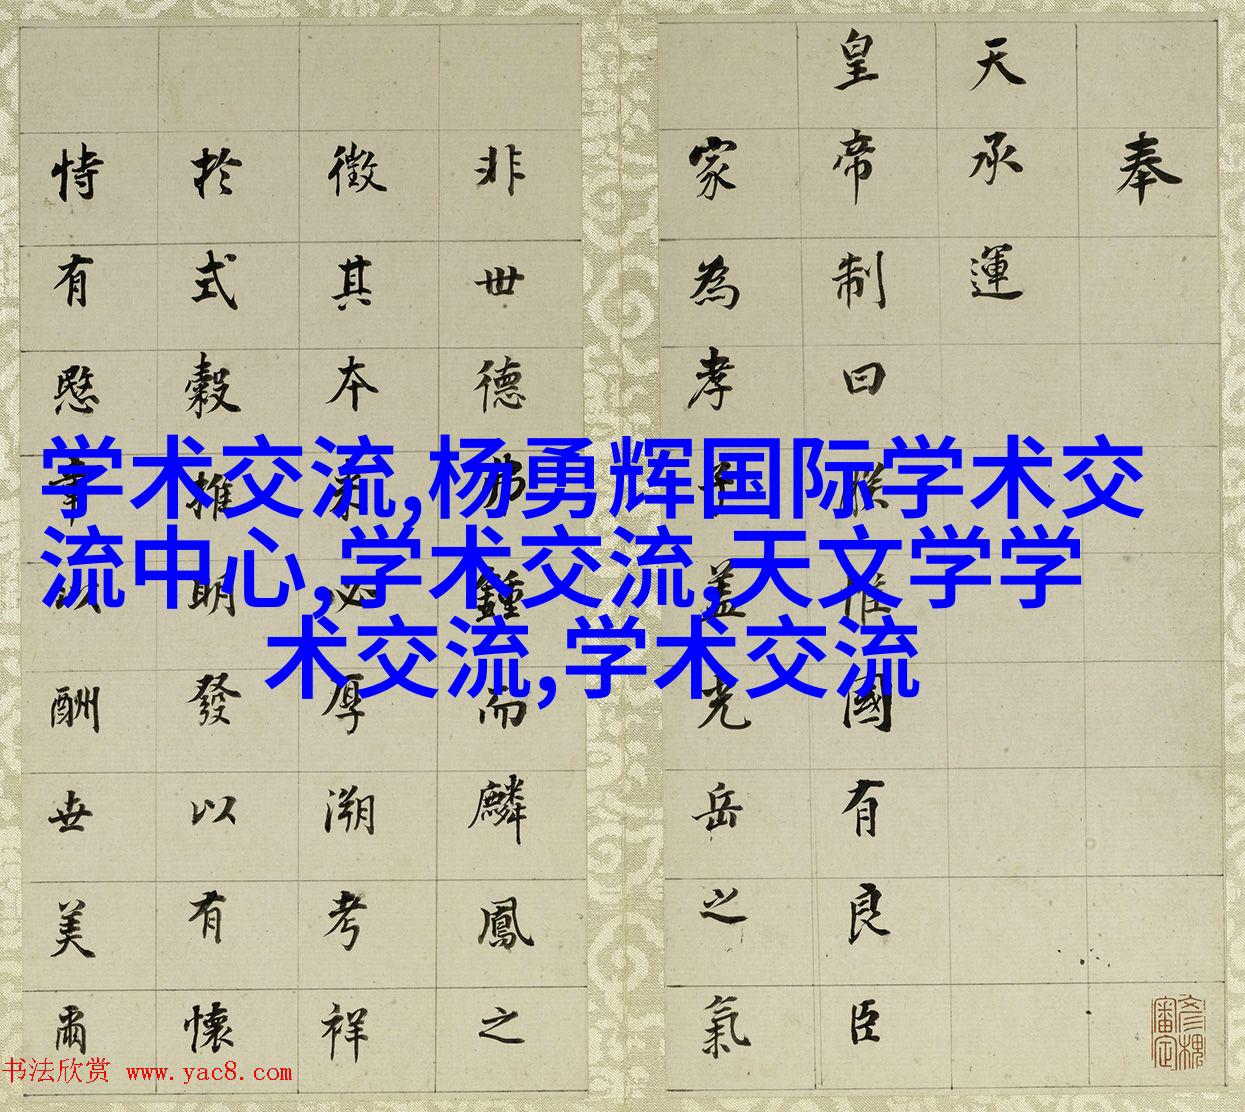 学术交流,杨勇辉国际学术交
流中心,学术交流,天文学学
术交流,学术交流
奉
天承運
皇帝制曰朕惟國有良臣
家為孝子蓋光岳之氣
非世德弗鍾而麟鳳之
徵其本必厚溯考祥
於式穀推明發以有懷
恃有愍章酬世美爾
书法欣赏 www.yac8.com